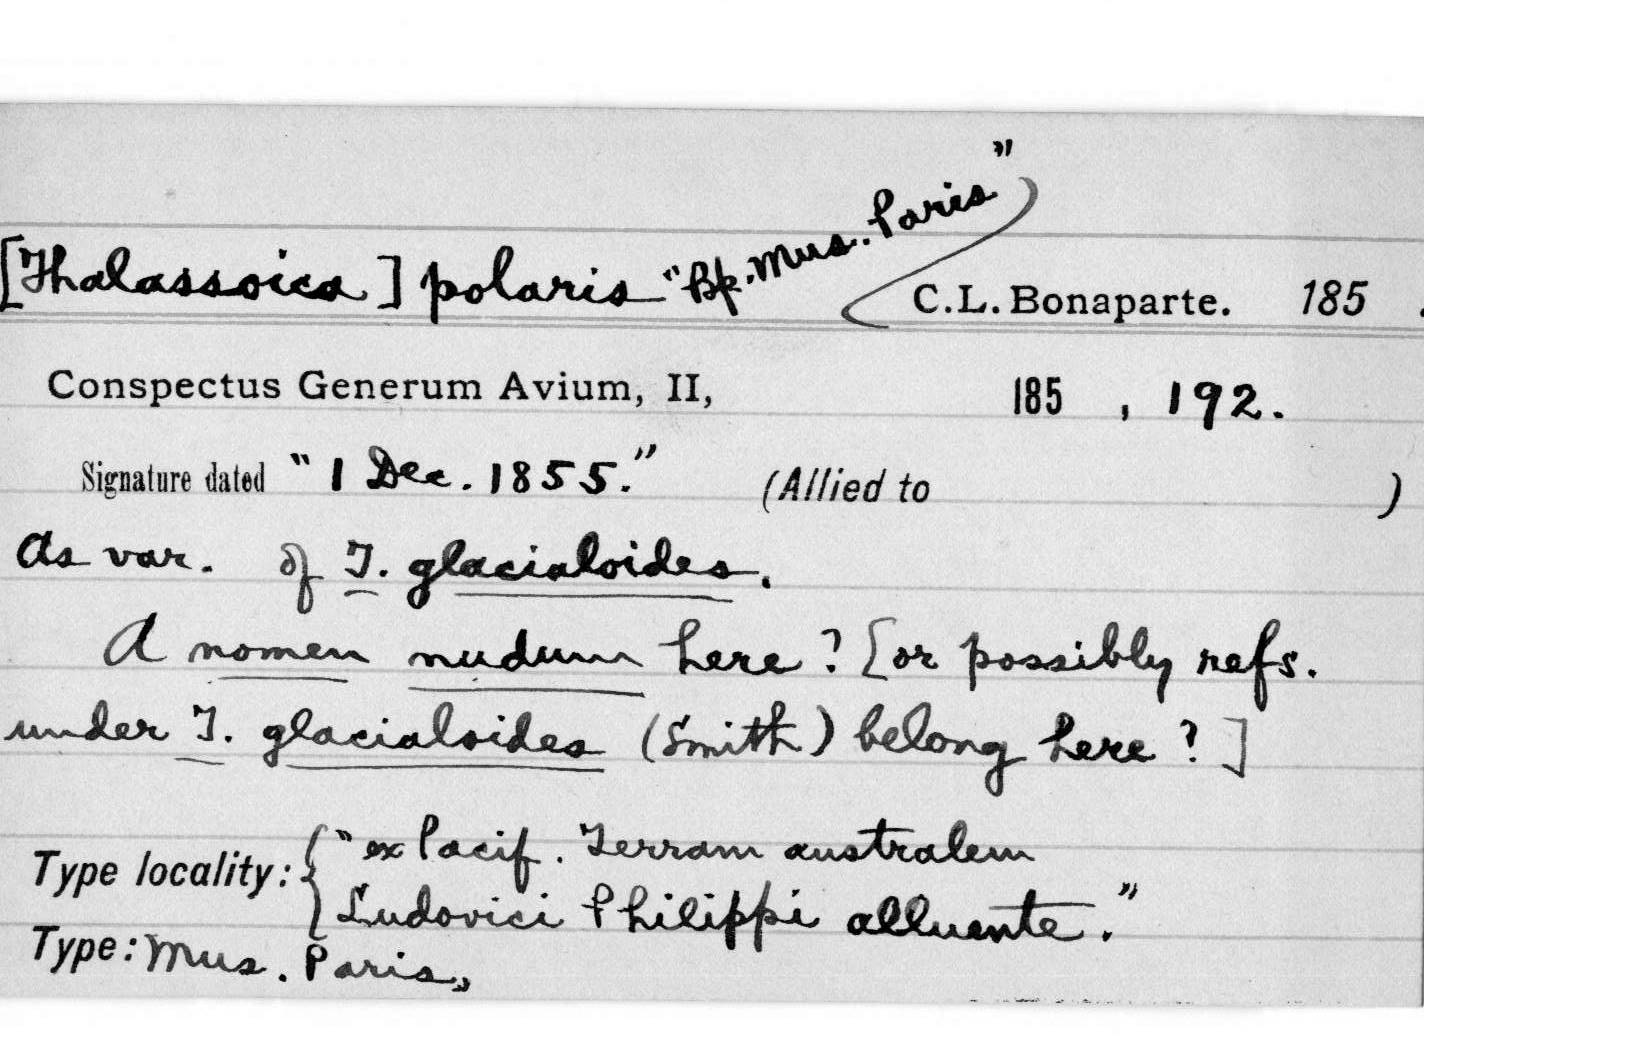 [Thalassoica] polaris "Bp. Mus. Paris" C.L. Bonaparte. 185 .
Conspectus Generum Avium, II, 185 , 192.
Signature dated "1 Dec. 1855." (Allied to )
As var. of T. glacialoides.
A nomen nudum here? [or possibly refs.
under T. glacialoides (Smith) belong here?]
Type locality: { "ex Pacif. Terram australem
Ludovici Philippi alluente."
Type: Mus. Paris,,